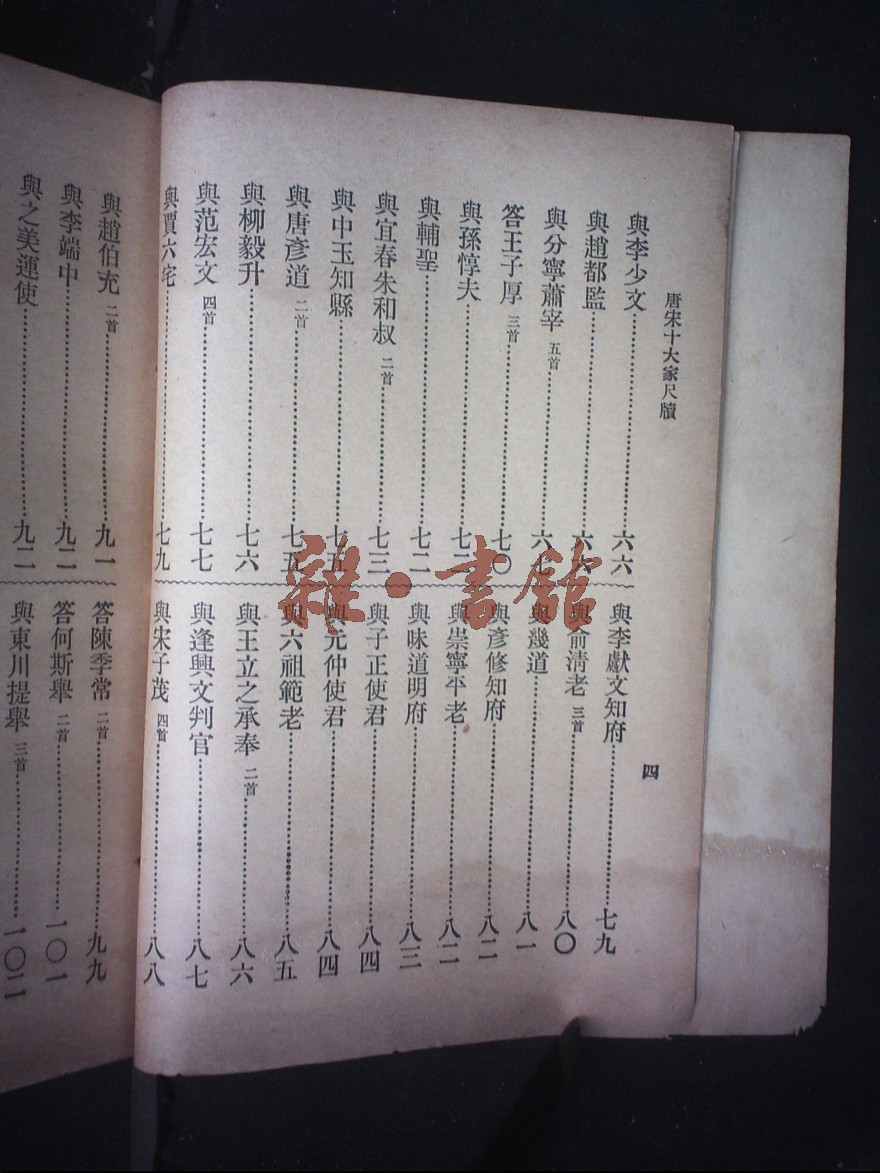 唐宋十大家尺牘
四
與李少文……六六
與趙都監……六六
與分寧蕭宰 五首……六七
答王子厚 三首……七〇
與孫惇夫……七二
與輔聖……七二
與宜春朱和叔 二首……七三
與中玉知縣……七五
與唐彥道 二首……七五
與柳毅升……七六
與范宏文 四首……七七
與賈六宅……七九
與李獻文知府……七九
與俞清老 三首……八〇
與幾道……八一
與彥修知府……八二
與崇寧平老……八二
與味道明府……八三
與子正使君……八四
與元仲使君……八四
與六祖範老……八五
與王立之承奉 二首……八六
與逢興文判官……八七
與宋子茂 四首……八八
與趙伯充 二首……九一
與李端中……九二
與之美運使……九二
答陳季常 二首……九九
答何斯舉 二首……一〇一
與東川提舉 三首……一〇二
雜·書館